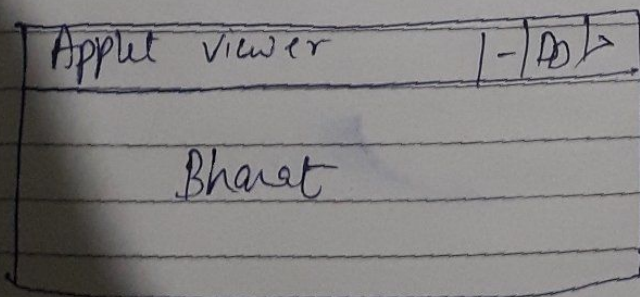 Applet viewer
Bharat